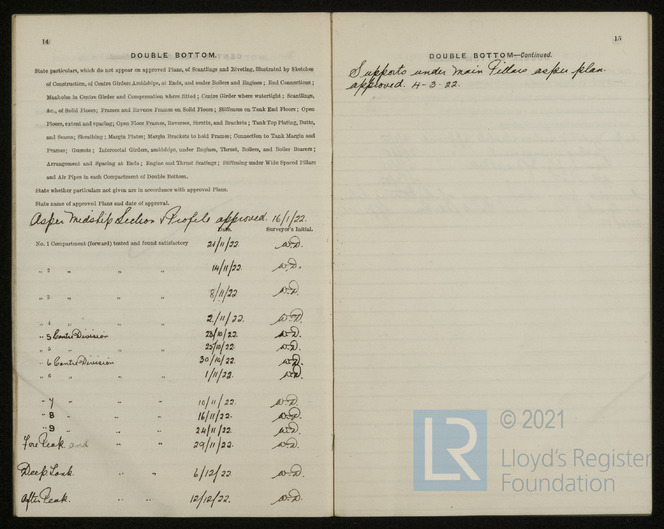 14
DOUBLE BOTTOM.
State particulars, which do not appear on approved Plans, of Scantlings and Riveting, illustrated by Sketches
of Construction, of Centre Girders Amidships, at Ends, and under Boilers and Engines; End Connections;
Manholes in Centre Girder and Compensation where fitted; Centre Girder where watertight; Scantlings,
&c., of Solid Floors; Frames and Reverse Frames on Solid Floors; Stiffeners on Tank End Floors; Open
Floors, extent and spacing; Open Floor Frames, Reverses, Struts, and Brackets; Tank Top Plating, Butts,
and Seams; Sheathing; Margin Plates; Margin Brackets to hold Frames; Connection to Tank Margin and
Frames; Gussets; Intercostal Girders, amidships, under Engines, Thrust, Boilers, and Boiler Bearers;
Arrangement and Spacing at Ends; Engine and Thrust Seatings; Stiffening under Wide Spaced Pillars
and Air Pipes in each Compartment of Double Bottom.
State whether particulars not given are in accordance with approved Plans.
State name of approved Plans and date of approval.
As per Midship Section & Profile approved. 16/1/22.
Date. Surveyor's Initial.
No. 1 Compartment (forward) tested and found satisfactory 21/11/22. W.D.
„ 2 „ „ „ 14/11/22. W.D.
„ 3 „ „ „ 8/11/22 W.D.
„ 4 „ „ „ 2/11/22. W.D.
„ 5 Centre Division 28/10/22. W.D.
„ 5 „ „ „ 25/10/22. W.D.
„ 6 Centre Division 30/10/22. W.D.
„ 6 „ „ „ 1/11/22. W.D.
„ 7 „ „ 10/11/22. W.D.
„ 8 „ „ 16/11/22. W.D.
„ 9 „ „ 24/11/22. W.D.
Fore Peak and „ „ 29/11/22. W.D.
Deep Tank. „ „ 6/12/22 W.D.
After Peak. „ „ 12/12/22. W.D.
15
DOUBLE BOTTOM—Continued.
Supports under Main Pillars as per plan
approved. 4-3-22.
LR
© 2021
Lloyd's Register
Foundation